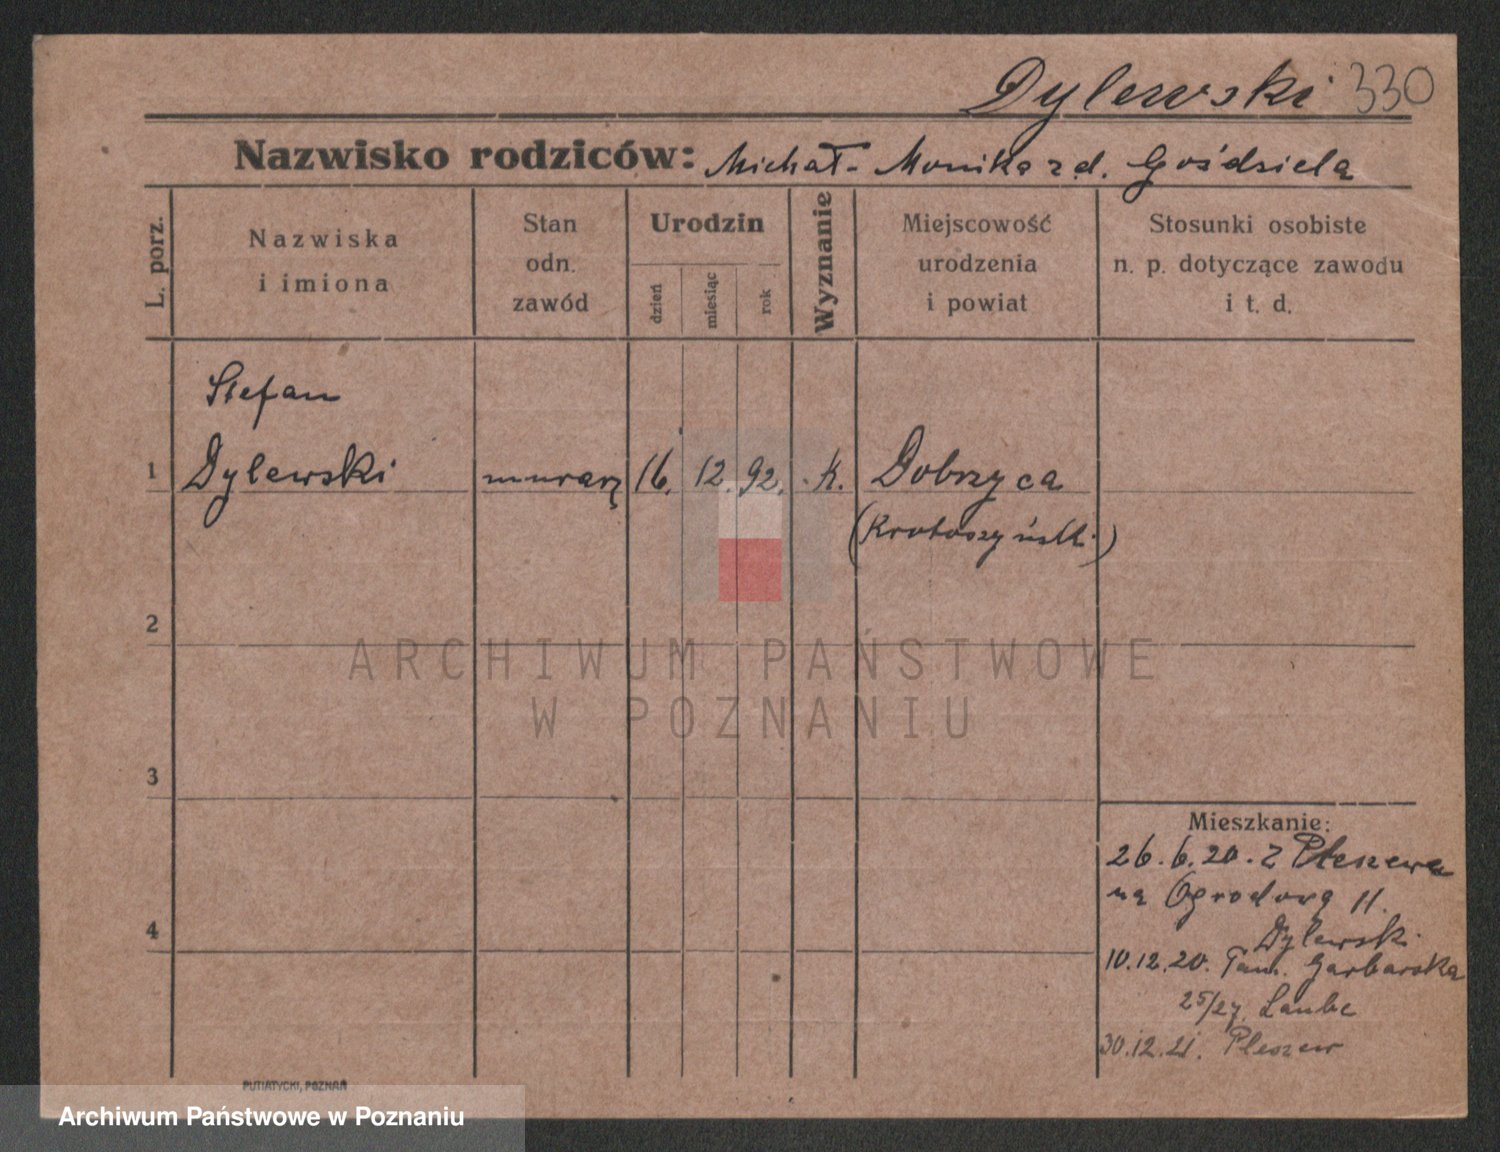 Dylewski 330
Nazwisko rodziców: Michał - Monika z d. Goździela
L. porz.
Nazwiska
i imiona
Stan
odn.
zawód
Urodzin
dzień
miesiąc
rok
Wyznanie
Miejscowość
urodzenia
i powiat
Stosunki osobiste
n. p. dotyczące zawodu
i t. d.
Stefan
1 Dylewski murarz 16. 12. 92. k. Dobrzyca
(Krotoszyński)
2
ARCHIWUM PAŃSTWOWE
W POZNANIU
3
Mieszkanie:
26.6.20. z Pleszewa
na Ogrodową 11.
4
Dylewski
10.12.20. Tam. Garbarska
25/27. Laube
30.12.21. Pleszew
PUTIATYCKI, POZNAŃ
Archiwum Państwowe w Poznaniu